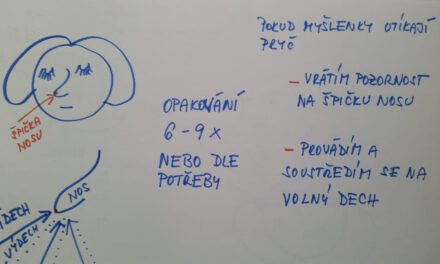 ŠPIČKA
NOSU
NOS
VÝDECH
OPAKOVÁNÍ
6-9x
NEBO DLE
POTŘEBY
POKUD MYŠLENKY UTÍKAJÍ
PRYČ
- VRÁTÍM POZORNOST
NA ŠPIČKU NOSU
- PROVÁDÍM A
SOUSTŘEDÍM SE NA
VOLNÝ DECH